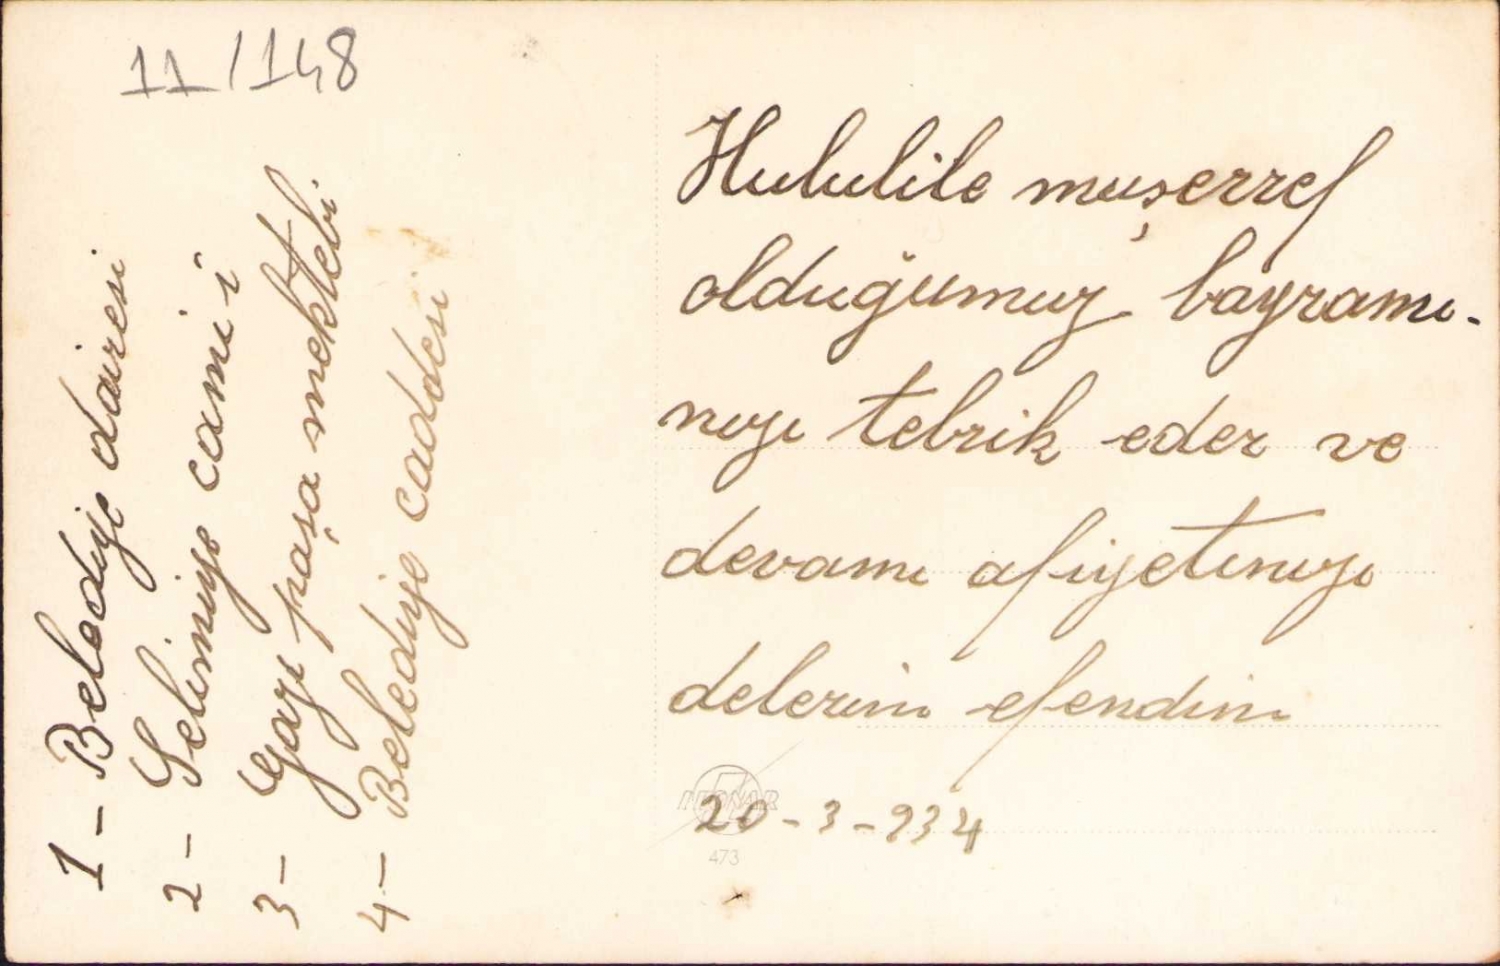 11/148
1- Belediye dairesi
2- Selimiye cami i
3- Gazi paşa mektebi
4- Belediye caddesi
Hululile muşerref
olduğumuz bayramı-
nızı tebrik eder ve
devamı afiyetinizi
delerim efendim
LEONAR
20-3-934
473